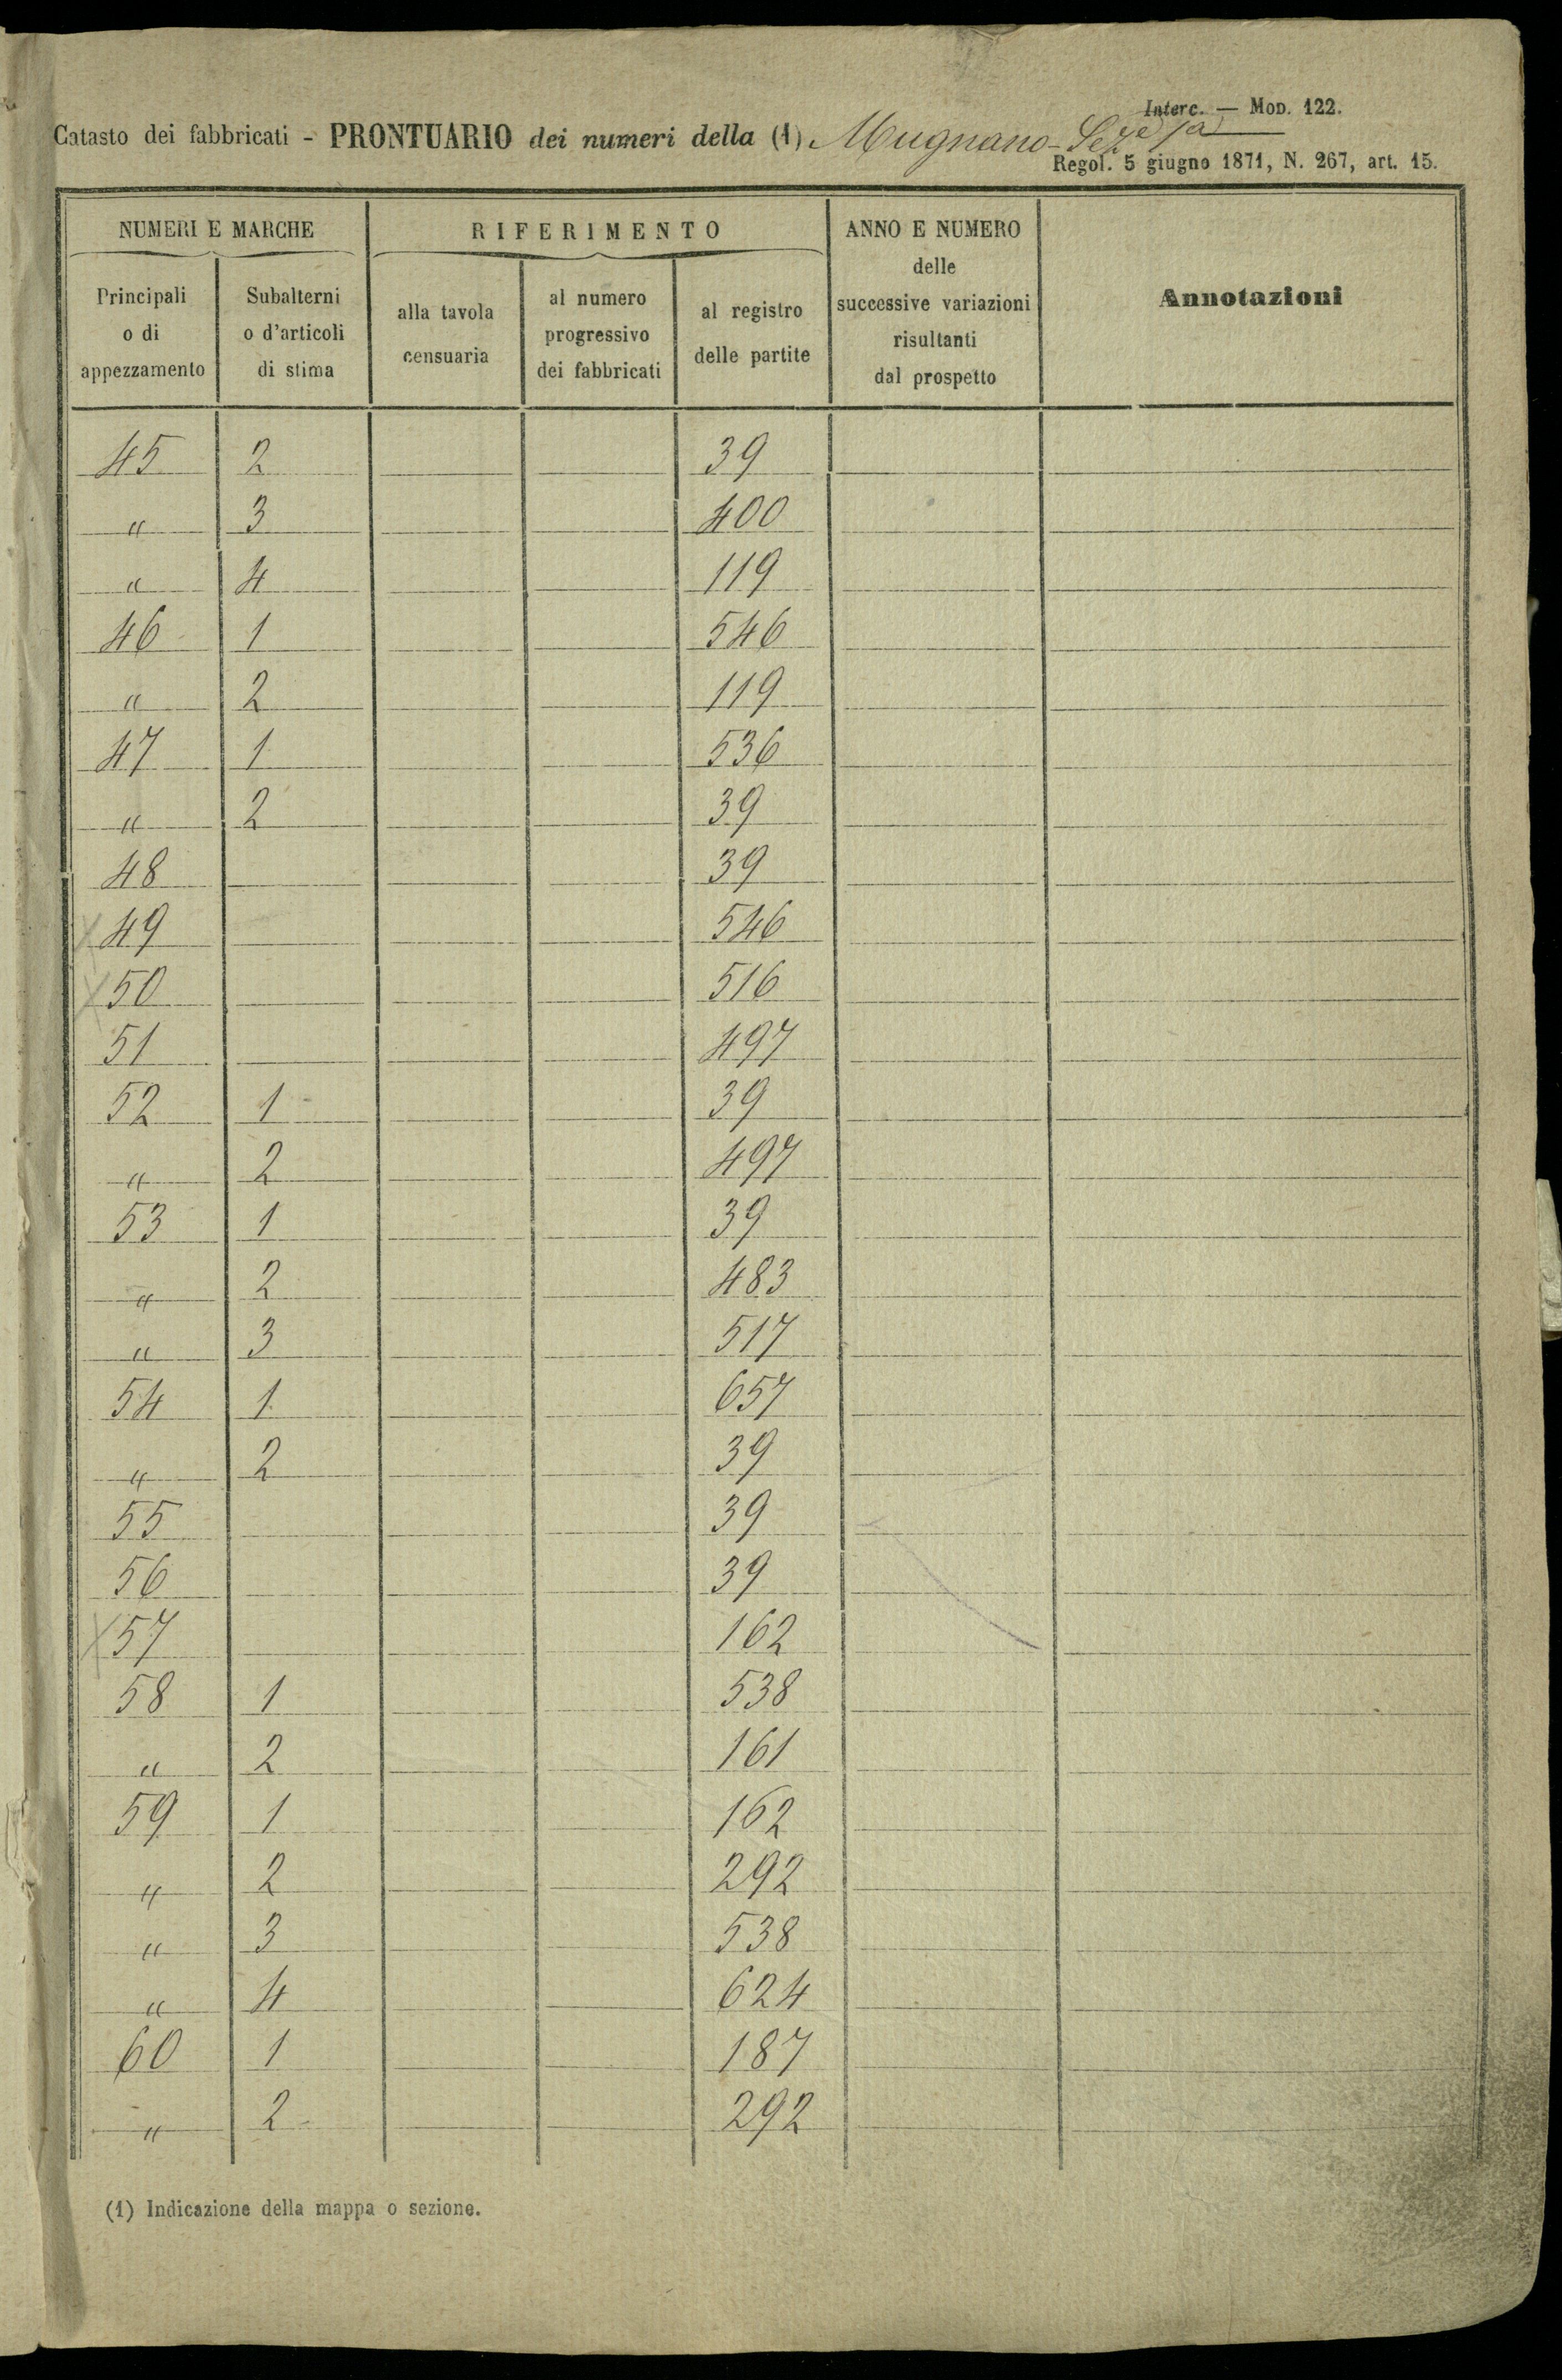 Interc. — Mod. 122.
Catasto dei fabbricati - PRONTUARIO dei numeri della (1) Mugnano - Sez.e 1a
Regol. 5 giugno 1871, N. 267, art. 15.
NUMERI E MARCHE RIFERIMENTO ANNO E NUMERO delle successive variazioni risultanti dal prospetto Annotazioni
Principali o di appezzamento Subalterni o d'articoli di stima alla tavola censuaria al numero progressivo dei fabbricati al registro delle partite
45 2 39
" 3 400
" 4 119
46 1 546
" 2 119
47 1 536
" 2 39
48 39
X 49 546
X 50 516
51 497
52 1 39
" 2 497
53 1 39
" 2 483
" 3 517
54 1 657
" 2 39
55 39
56 39
X 57 162
58 1 538
" 2 161
59 1 162
" 2 292
" 3 538
" 4 624
60 1 187
" 2 292
(1) Indicazione della mappa o sezione.